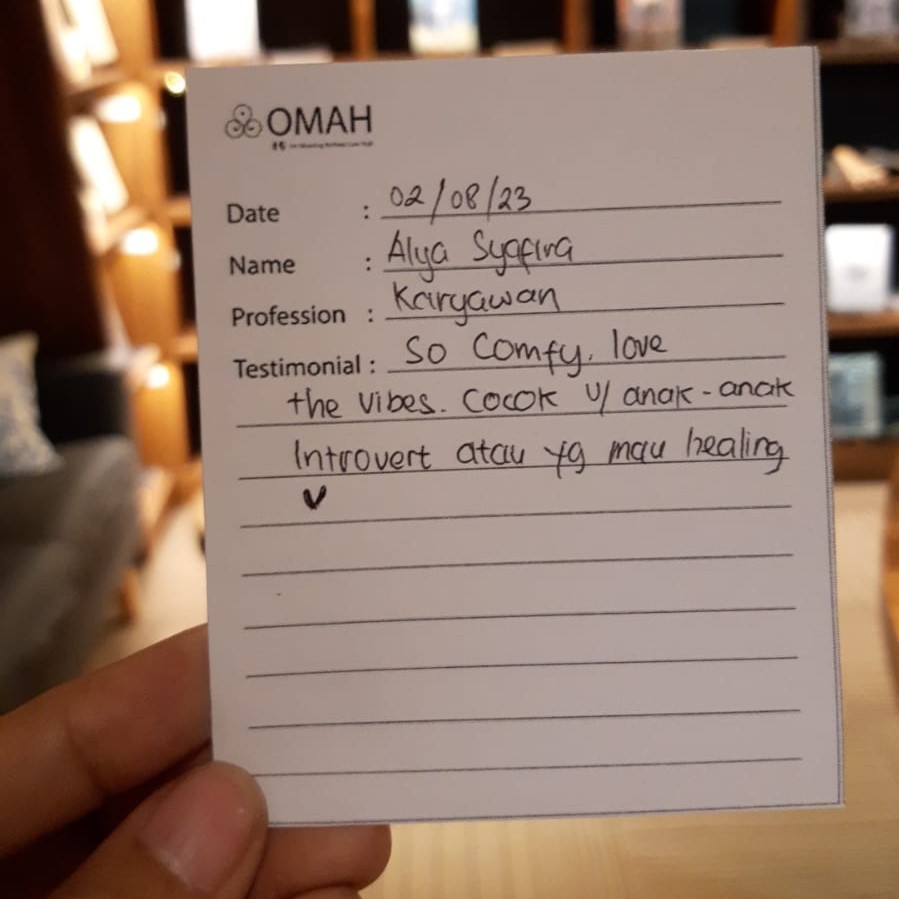 OMAH
Date : 02/08/23
Name : Alya Syafira
Profession : Karyawan
Testimonial : So Comfy, love
the vibes. Cocok u/ anak-anak
Introvert atau yg mau healing